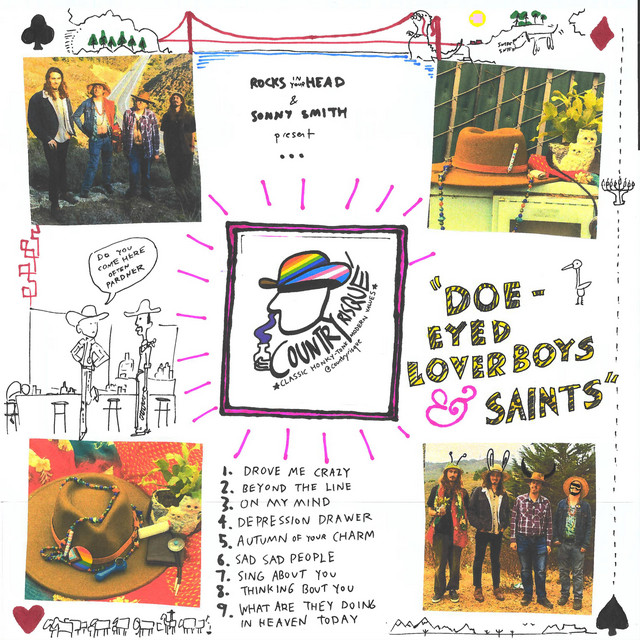 ROCKS IN YOUR HEAD
&
SONNY SMITH
present
...
DO YOU
COME HERE
OFTEN
PARDNER
COUNTRY RISQUÉ
*CLASSIC HONKY-TONK MODERN VALUES*
@countryrisque
"DOE-
EYED
LOVERBOYS
& SAINTS"
1. DROVE ME CRAZY
2. BEYOND THE LINE
3. ON MY MIND
4. DEPRESSION DRAWER
5. AUTUMN OF YOUR CHARM
6. SAD SAD PEOPLE
7. SING ABOUT YOU
8. THINKING BOUT YOU
9. WHAT ARE THEY DOING
IN HEAVEN TODAY